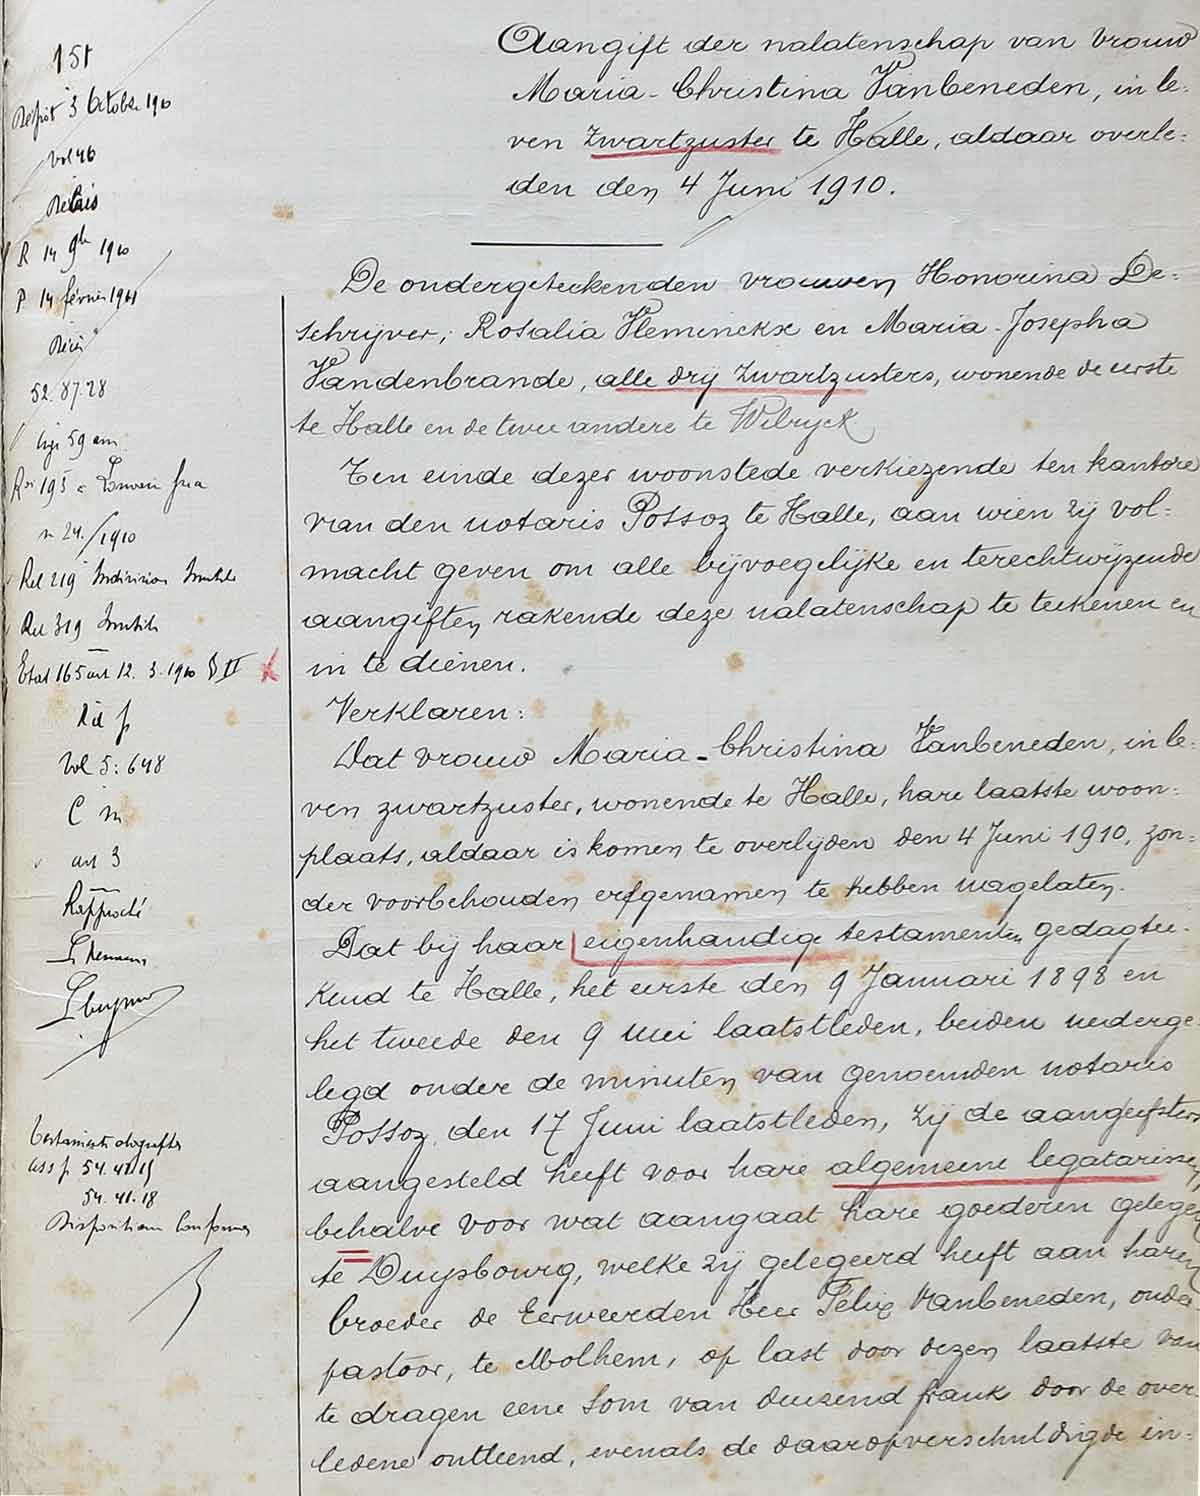 151
3 Octobre 1910
vol 46
Relais
R 14 9bre 1910
P 14 février 1911
52.87.28
59 am
n 24/1910
Rel 219 Indivision Inutile
Rel 319 Inutile
Etat 165 art 12. 3. 1910 § II
Vol 5: 648
C m
art 3
Rapproché
Testaments olographes
54.41.15
54.41.18
Dispositions conformes
Aangift der nalatenschap van Vrouw
Maria-Christina Vanbeneden, in le:
ven Zwartzuster te Halle, aldaar overle:
den den 4 Juni 1910.
De ondergeteekenden vrouwen Honorina De:
schrijver, Rosalia Vleminckx en Maria-Josepha
Vandenbrande, alle drij Zwartzusters, wonende de eerste
te Halle en de twee andere te Wilryck
Ten einde dezer woonstede verkiezende ten kantore
van den notaris Possoz te Halle, aan wien zij vol:
macht geven om alle bijvoegelijke en terechtwijzende
aangiften rakende deze nalatenschap te teekenen en
in te dienen.
Verklaren:
Dat vrouw Maria-Christina Vanbeneden, in le:
ven zwartzuster, wonende te Halle, hare laatste woon:
plaats, aldaar is komen te overlijden den 4 Juni 1910, zon:
der voorbehouden erfgenamen te hebben nagelaten.
Dat bij haar eigenhandige testamenten gedagtee:
kend te Halle, het eerste den 9 Januari 1898 en
het tweede den 9 mei laatstleden, beiden nederge
legd onder de minuten van genoemden notaris
Possoz, den 17 Juni laatstleden, zij de aangeefsters
aangesteld heeft voor hare algemeene legatarissen,
behalve voor wat aangaat hare goederen gelegen
te Duysbourg, welke zij gelegeerd heeft aan haren
broeder de Eerweerden Heer Félix Vanbeneden, onder
pastoor, te Molhem, op last door dezen laatste van
te dragen eene som van duizend frank door de over
ledene ontleend, evenals de daaropverschuldigde in: